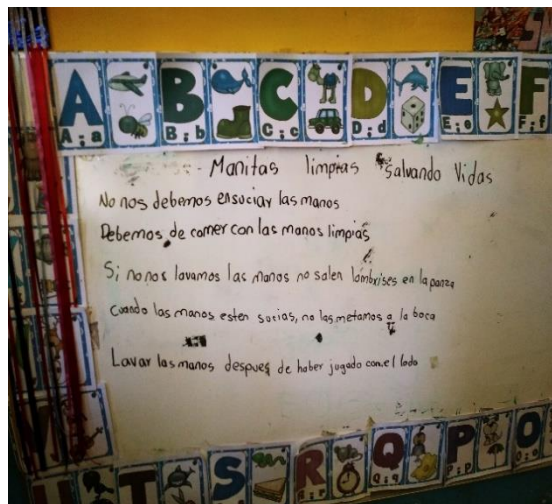 A B C D E F
A;a B;b C;c D;d E;e F;f
Manitas limpias Salvando Vidas
No nos debemos ensuciar las manos
Debemos de comer con las manos limpias
Si no nos lavamos las manos no salen lombrises en la panza
Cuando las manos esten sucias, no las metamos a la boca
Lavar las manos despues de haber jugado con el lodo
U T S R Q P O
R;r Q;q P;p O;o